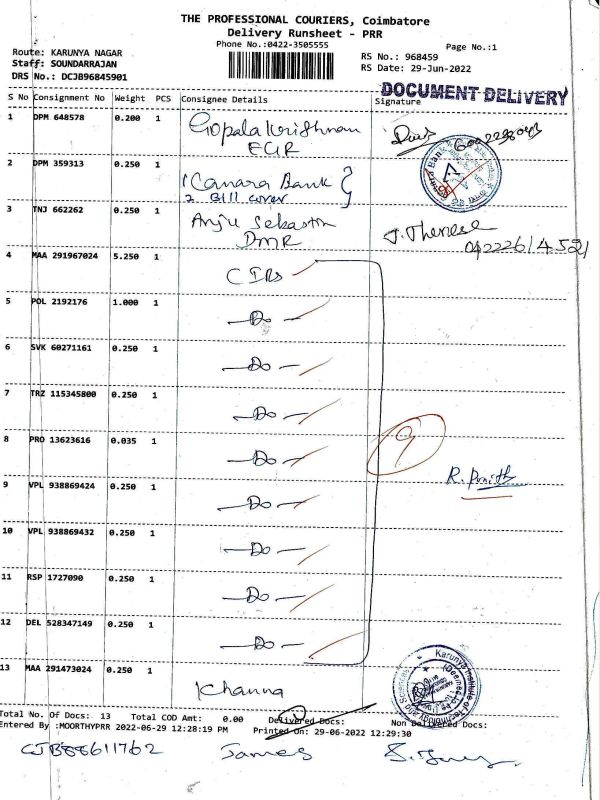 THE PROFESSIONAL COURIERS, Coimbatore
Delivery Runsheet - PRR
Phone No.:0422-3505555
Page No.:1
Route: KARUNYA NAGAR
Staff: SOUNDARRAJAN
DRS No.: DCJB96845901
RS No.: 968459
RS Date: 29-Jun-2022
DOCUMENT DELIVERY
S No Consignment No Weight PCS Consignee Details Signature
1 DPM 648578 0.200 1 Gopala Krishnan
ECR
2 DPM 359313 0.250 1 Canara Bank
2 Bill cover
3 TNJ 662262 0.250 1 Anju Sebastin
DMR
J. Therese
4 MAA 291967024 5.250 1 CIRs
5 POL 2192176 1.000 1 —Do—
6 SVK 60271161 0.250 1 —Do—
7 TRZ 115345800 0.250 1 —Do—
8 PRO 13623616 0.035 1 —Do—
9
9 VPL 938869424 0.250 1 —Do—
10 VPL 938869432 0.250 1 —Do—
11 RSP 1727090 0.250 1 —Do—
12 DEL 528347149 0.250 1 —Do—
13 MAA 291473024 0.250 1 Khanna
Total No. Of Docs: 13 Total COD Amt: 0.00 Delivered Docs: Non Delivered Docs:
Entered By :MOORTHYPRR 2022-06-29 12:28:19 PM Printed On: 29-06-2022 12:29:30
CJB88611762 James